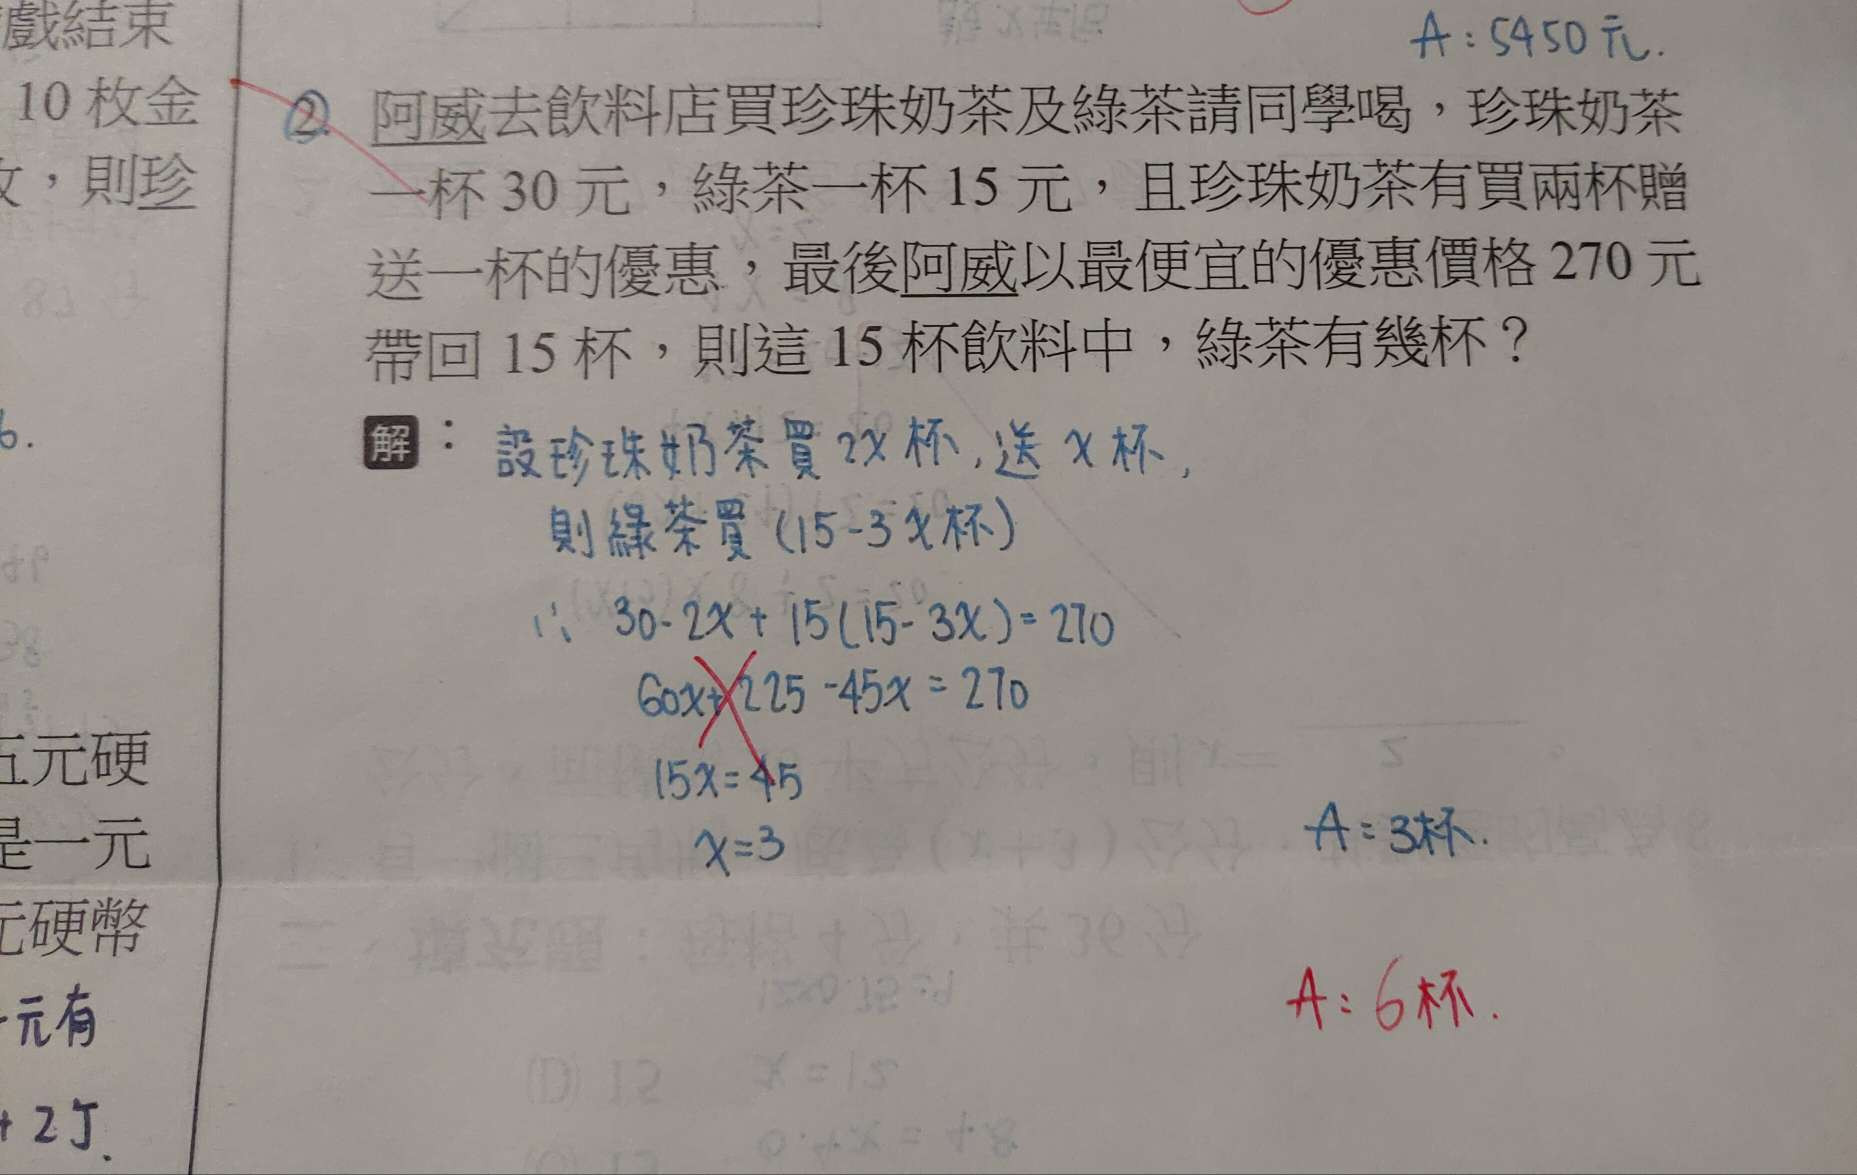 戲結束
10 枚金
則珍
6.
五元硬
是一元
元硬幣
元有
+ 25.
A:5450元.
2. 阿威去飲料店買珍珠奶茶及綠茶請同學喝，珍珠奶茶
一杯 30 元，綠茶一杯 15 元，且珍珠奶茶有買兩杯贈
送一杯的優惠，最後阿威以最便宜的優惠價格 270 元
帶回 15 杯，則這 15 杯飲料中，綠茶有幾杯？
解：設珍珠奶茶買 2x 杯, 送 x 杯,
則綠茶買 (15-3x杯)
∴ 30·2x + 15(15-3x) = 270
60x + 225 - 45x = 270
15x = 45
x = 3
A:3杯.
A:6杯.